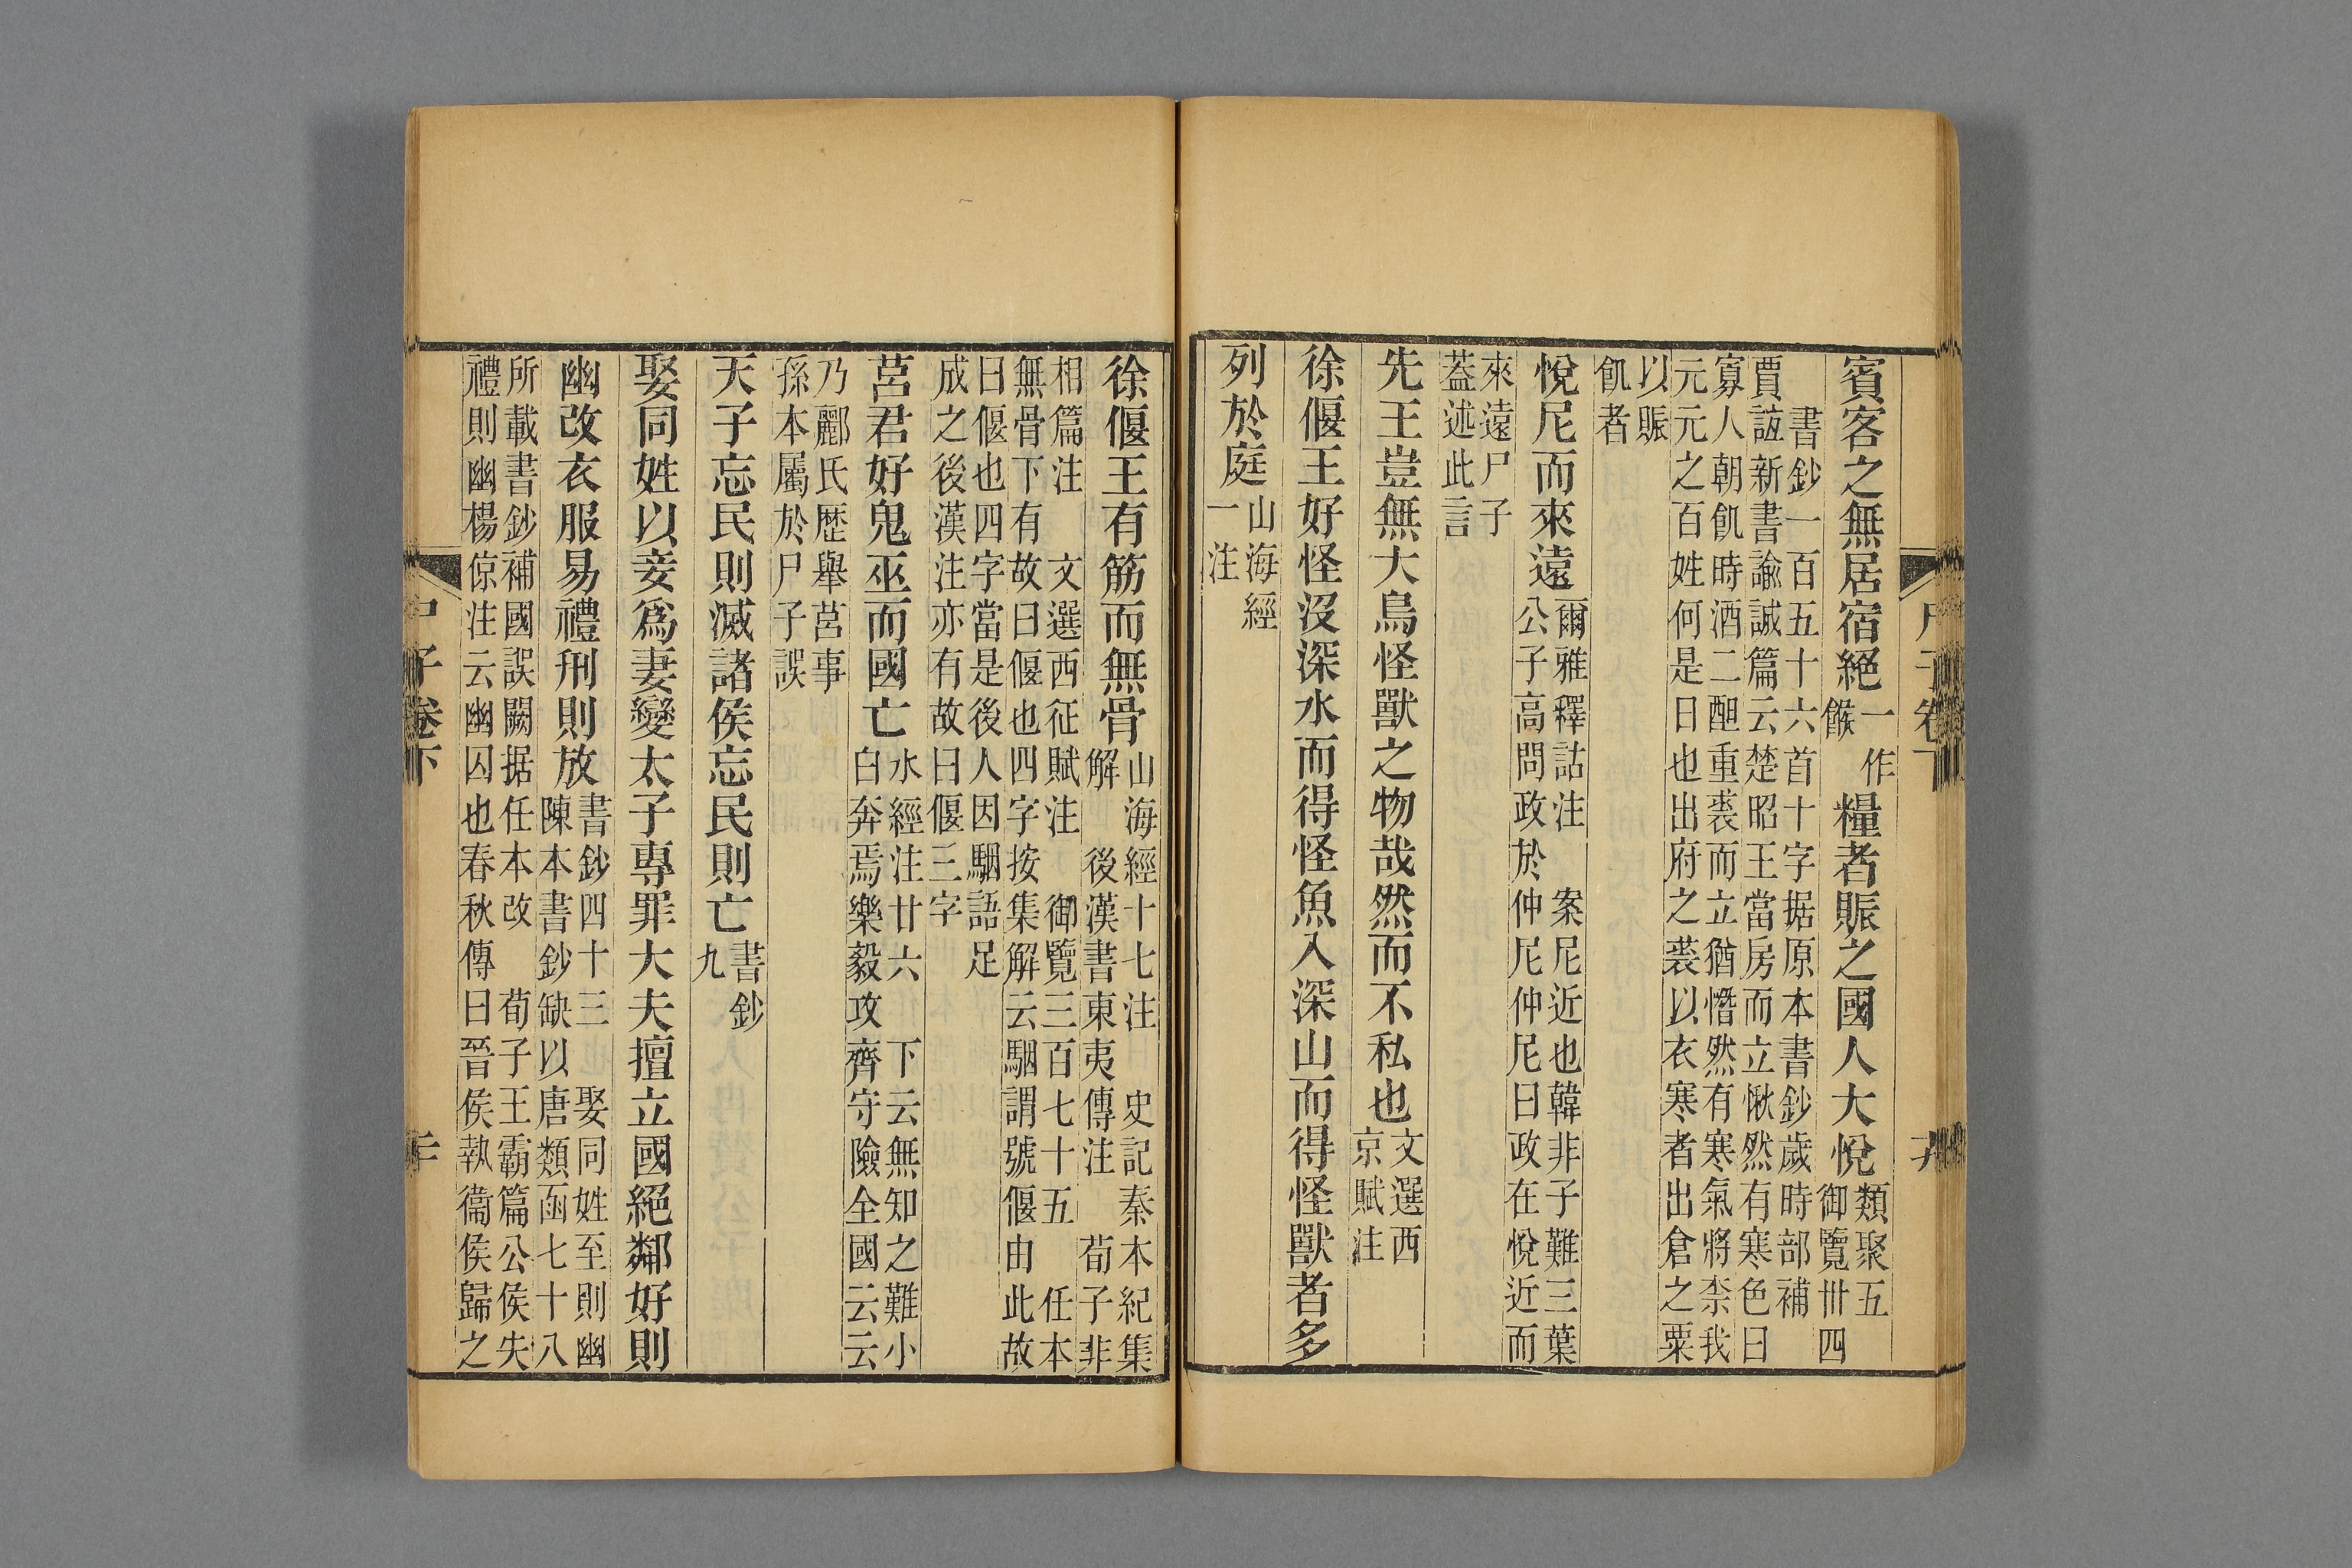 賓客之無居宿絕一作餱糧者賑之國人大悅類聚五御覽卌四
書鈔一百五十六首十字据原本書鈔歲時部補
賈誼新書諭誠篇云楚昭王當房而立愀然有寒色曰
寡人朝飢時酒二𨠑重裘而立猶憯然有寒氣將柰我
元元之百姓何是日也出府之裘以衣寒者出倉之粟
以賑
飢者
悅尼而來遠爾雅釋詁注案尼近也韓非子難三葉公子高問政於仲尼仲尼曰政在悅近而
來遠尸子
蓋述此言
先王豈無大鳥怪獸之物哉然而不私也文選西京賦注
徐偃王好怪沒深水而得怪魚入深山而得怪獸者多
列於庭山海經一注
徐偃王有筋而無骨山海經十七注史記秦本紀集解後漢書東夷傳注荀子非
相篇注文選西征賦注御覽三百七十五任本
無骨下有故曰偃也四字按集解云駰謂號偃由此故
曰偃也四字當是後人因駰語足
成之後漢注亦有故曰偃三字
莒君好鬼巫而國亡水經注廿六下云無知之難小白奔焉樂毅攻齊守險全國云云
乃酈氏歷舉莒事
孫本屬於尸子誤
天子忘民則滅諸侯忘民則亡書鈔九
娶同姓以妾爲妻變太子專罪大夫擅立國絕鄰好則
幽改衣服易禮刑則放書鈔四十三娶同姓至則幽陳本書鈔缺以唐類函七十八
所載書鈔補國誤闕据任本改荀子王霸篇公侯失
禮則幽楊倞注云幽囚也春秋傳曰晉侯執衞侯歸之
尸子卷下